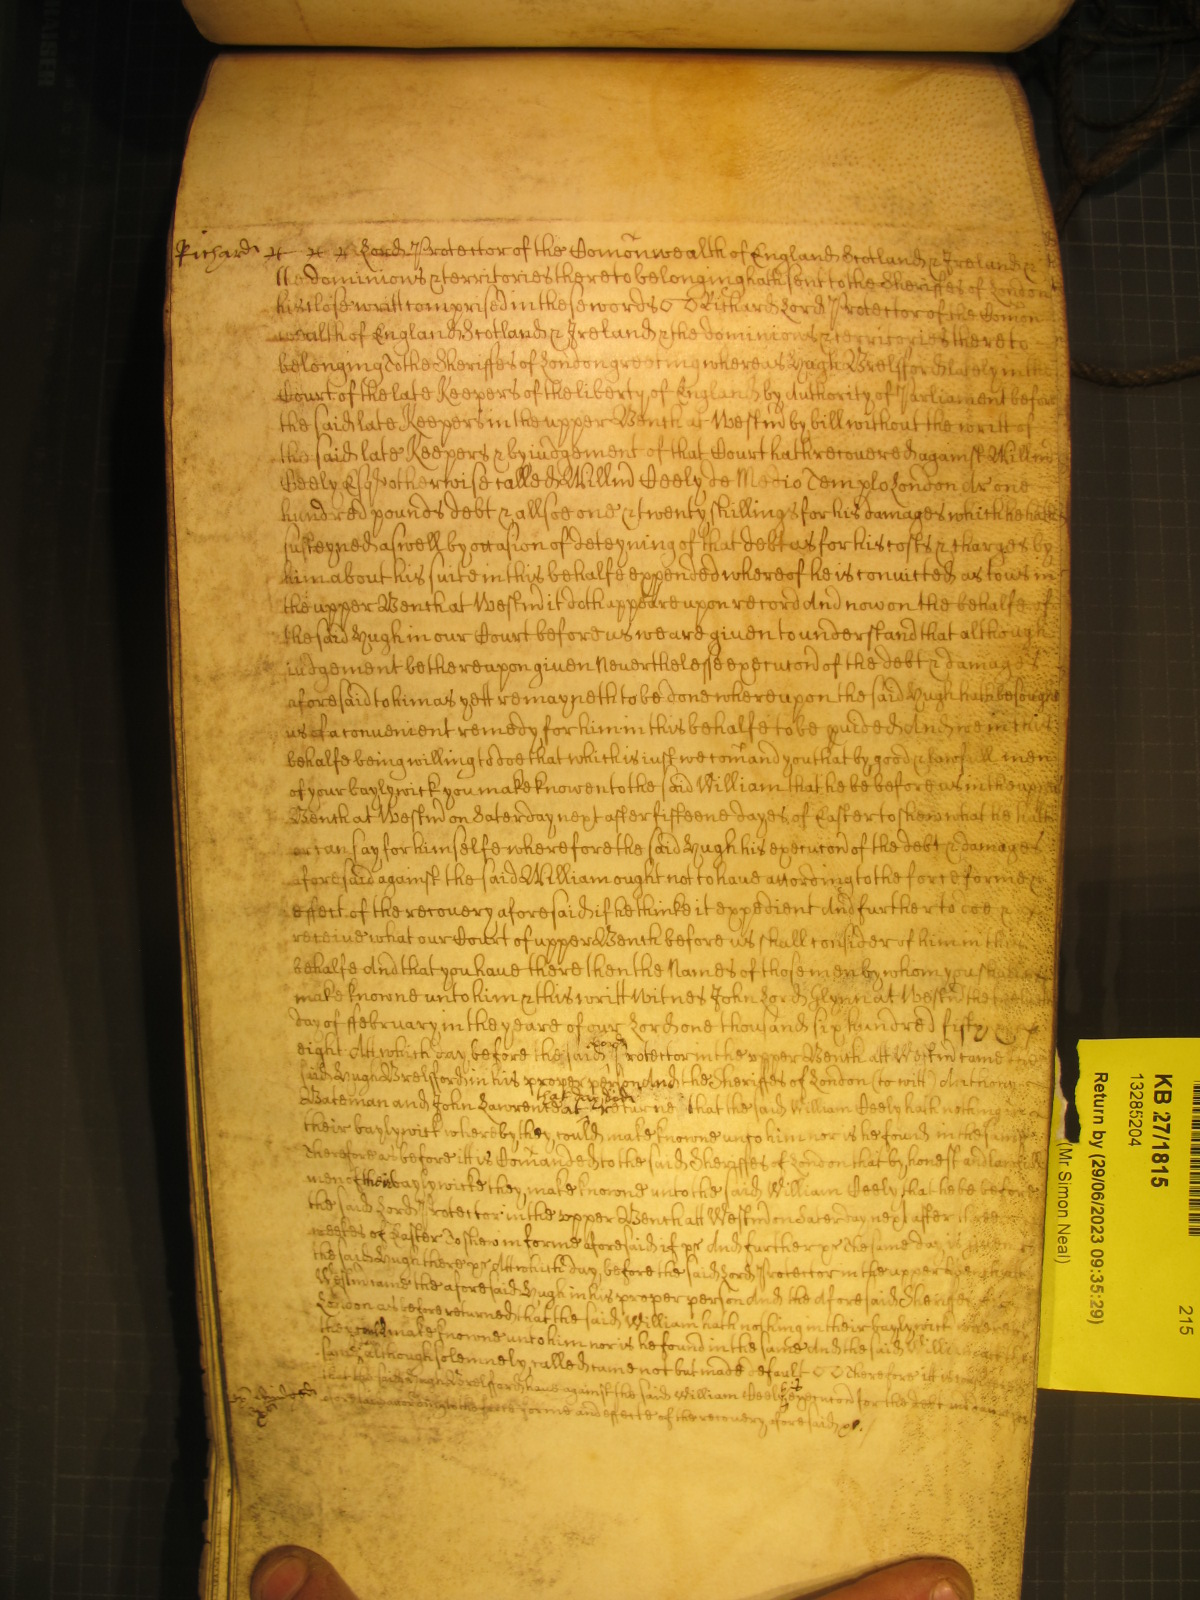 Richard & & & Lord Protector of the Comonwealth of England Scotland & Ireland &
the dominions & territories thereto belonging hath sent to the Sheriffes of London
his close writt comprised in these words Richard Lord Protector of the Comon
wealth of England Scotland & Ireland & the dominions & territories thereto
belonging To the Sheriffes of London greeting whereas Hugh Brelsford lately in the
Court of the late Keepers of the liberty of England by authority of Parliament before
the said late Keepers in the upper Bench at Westm by bill without the writt of
the said late Keepers & by iudgement of that Court hath recovered against Willm
Ceely Esqr otherwise called Willm Ceely de Medio Templo London Ar one
hundred pounds debt & allsoe one & twenty shillings for his damages which he hath
susteyned aswell by occasion of deteyning of that debt as for his costs & charges by
him about his suite in this behalfe expended whereof he is convicted as to us in
the upper Bench at Westm it doth appeare upon record And now on the behalfe of
the said Hugh in our Court before us we are given to understand that although
iudgement be thereupon given Neverthelesse execucon of the debt & damages
aforesaid to him as yett remayneth to be done whereupon the said Hugh hath besought
us of a convenient remedy for him in this behalfe to be pvided And we in this
behalfe being willing to doe that which is iust we comand you that by good & lawfull men
of your baylywick you make knowen to the said William that he be before us in the upper
Bench at Westm on Saterday next after fifteene dayes of Easter to shew what he hath
or can say for himselfe wherefore the said Hugh his execucon of the debt & damages
aforesaid against the said William ought not to have according to the force forme &
effect of the recovery aforesaid if he thinke it expedient And further to doe &
receive what our Court of upper Bench before us shall consider of him in this
behalfe And that you have there then the Names of those men by whom you shall
make knowne unto him & this writt Witnes John Lord Glynn at Westm the
day of ffebruary in the yeare of our Lord one thousand six hundred fifty
eight Att which day before the said Lord Protector in the upper Bench att Westm came the
said Hugh Brelsford in his proper person And the Sheriffes of London (to witt) Anthony
Bateman and John Lawrence at that day did returne that the said William Ceely hath nothing in
their baylywick whereby they could make knowne unto him nor is he found in the same
Therefore as before itt is Comanded to the said Sheriffes of London that by honest and lawfull
men of their baylywicke they make knowne unto the said William Ceely that he be before
the said Lord Protector in the upper Bench att Westm on Saterday next after three
weekes of Easter To shew in forme aforesaid if &c And further &c The same day is given to
the said Hugh there &c Att which day before the said Lord Protector in the upper Bench att
Westm came the aforesaid Hugh in his proper person And the aforesaid Sheriffes of
London as before returned that the said William hath nothing in their baylywick whereby
they could make knowne unto him nor is he found in the same And the said William att the
same although solemnely called came not but made default Therefore itt is considered
that the said Hugh Brelsford have against the said William Ceely his execucon for the debt and damages
according to the force forme and effecte of the recovery aforesaid &c.
KB 27/1815
13285204
Return by (29/06/2023 09:35:29)
(Mr Simon Neal)
215